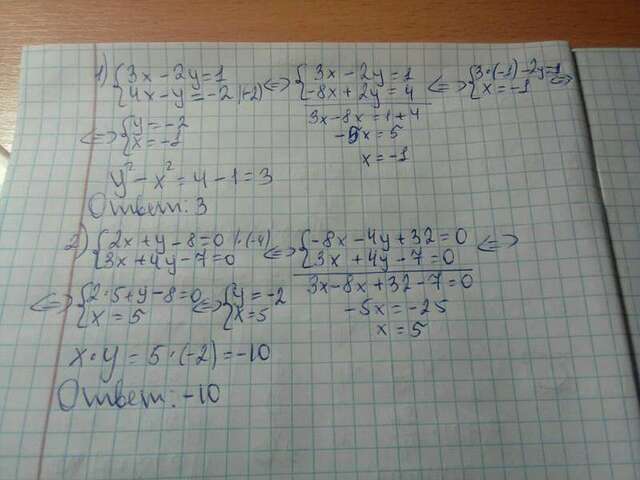 1) {3x-2y=1 {4x-y=-2 |(-2) <=> {3x-2y=1 {-8x+2y=4 <=> {3·(-1)-2y=1 {x=-1 <=>
3x-8x=1+4
-5x=5
x=-1
<=> {y=-2 {x=-1
y²-x²=4-1=3
Ответ: 3
2) {2x+y-8=0 |·(-4) {3x+4y-7=0 <=> {-8x-4y+32=0 {3x+4y-7=0 <=>
3x-8x+32-7=0
-5x=-25
x=5
<=> {2·5+y-8=0 {x=5 <=> {y=-2 {x=5
x·y=5·(-2)=-10
Ответ: -10